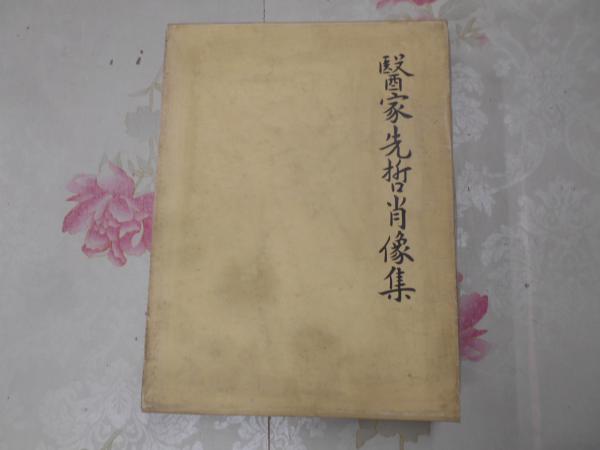 醫家先哲肖像集